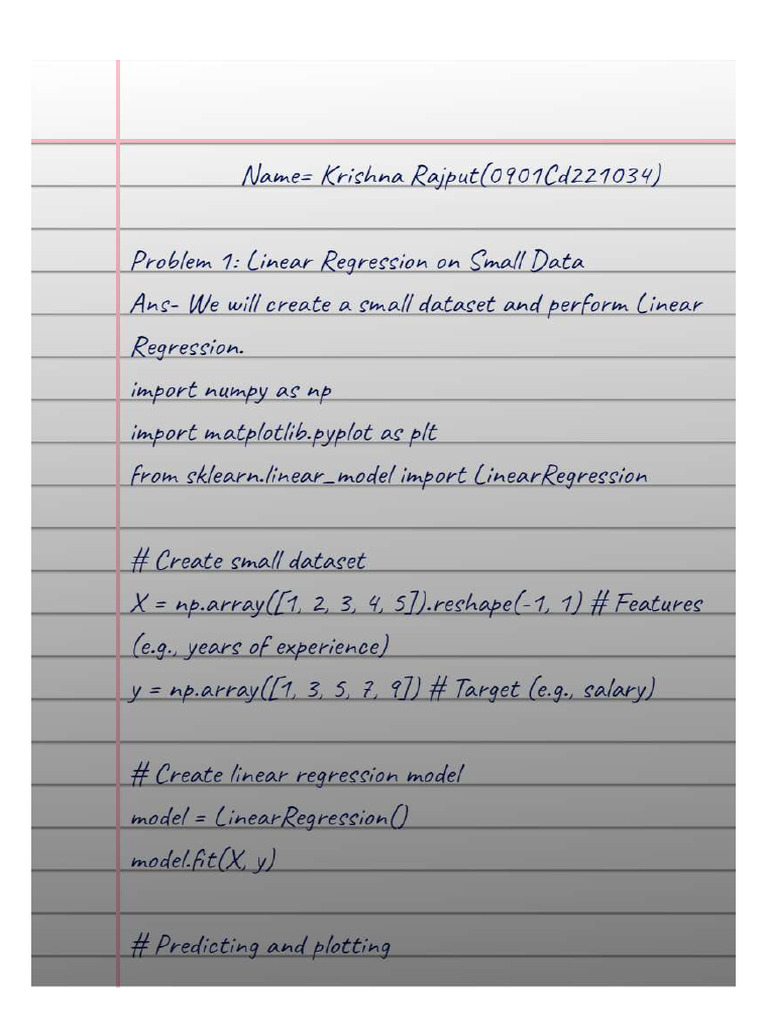 Name= Krishna Rajput(0901Cd221034)
Problem 1: Linear Regression on Small Data
Ans- We will create a small dataset and perform Linear
Regression.
import numpy as np
import matplotlib.pyplot as plt
from sklearn.linear_model import LinearRegression
# Create small dataset
X = np.array([1, 2, 3, 4, 5]).reshape(-1, 1) # Features
(e.g., years of experience)
y = np.array([1, 3, 5, 7, 9]) # Target (e.g., salary)
# Create linear regression model
model = LinearRegression()
model.fit(X, y)
# Predicting and plotting